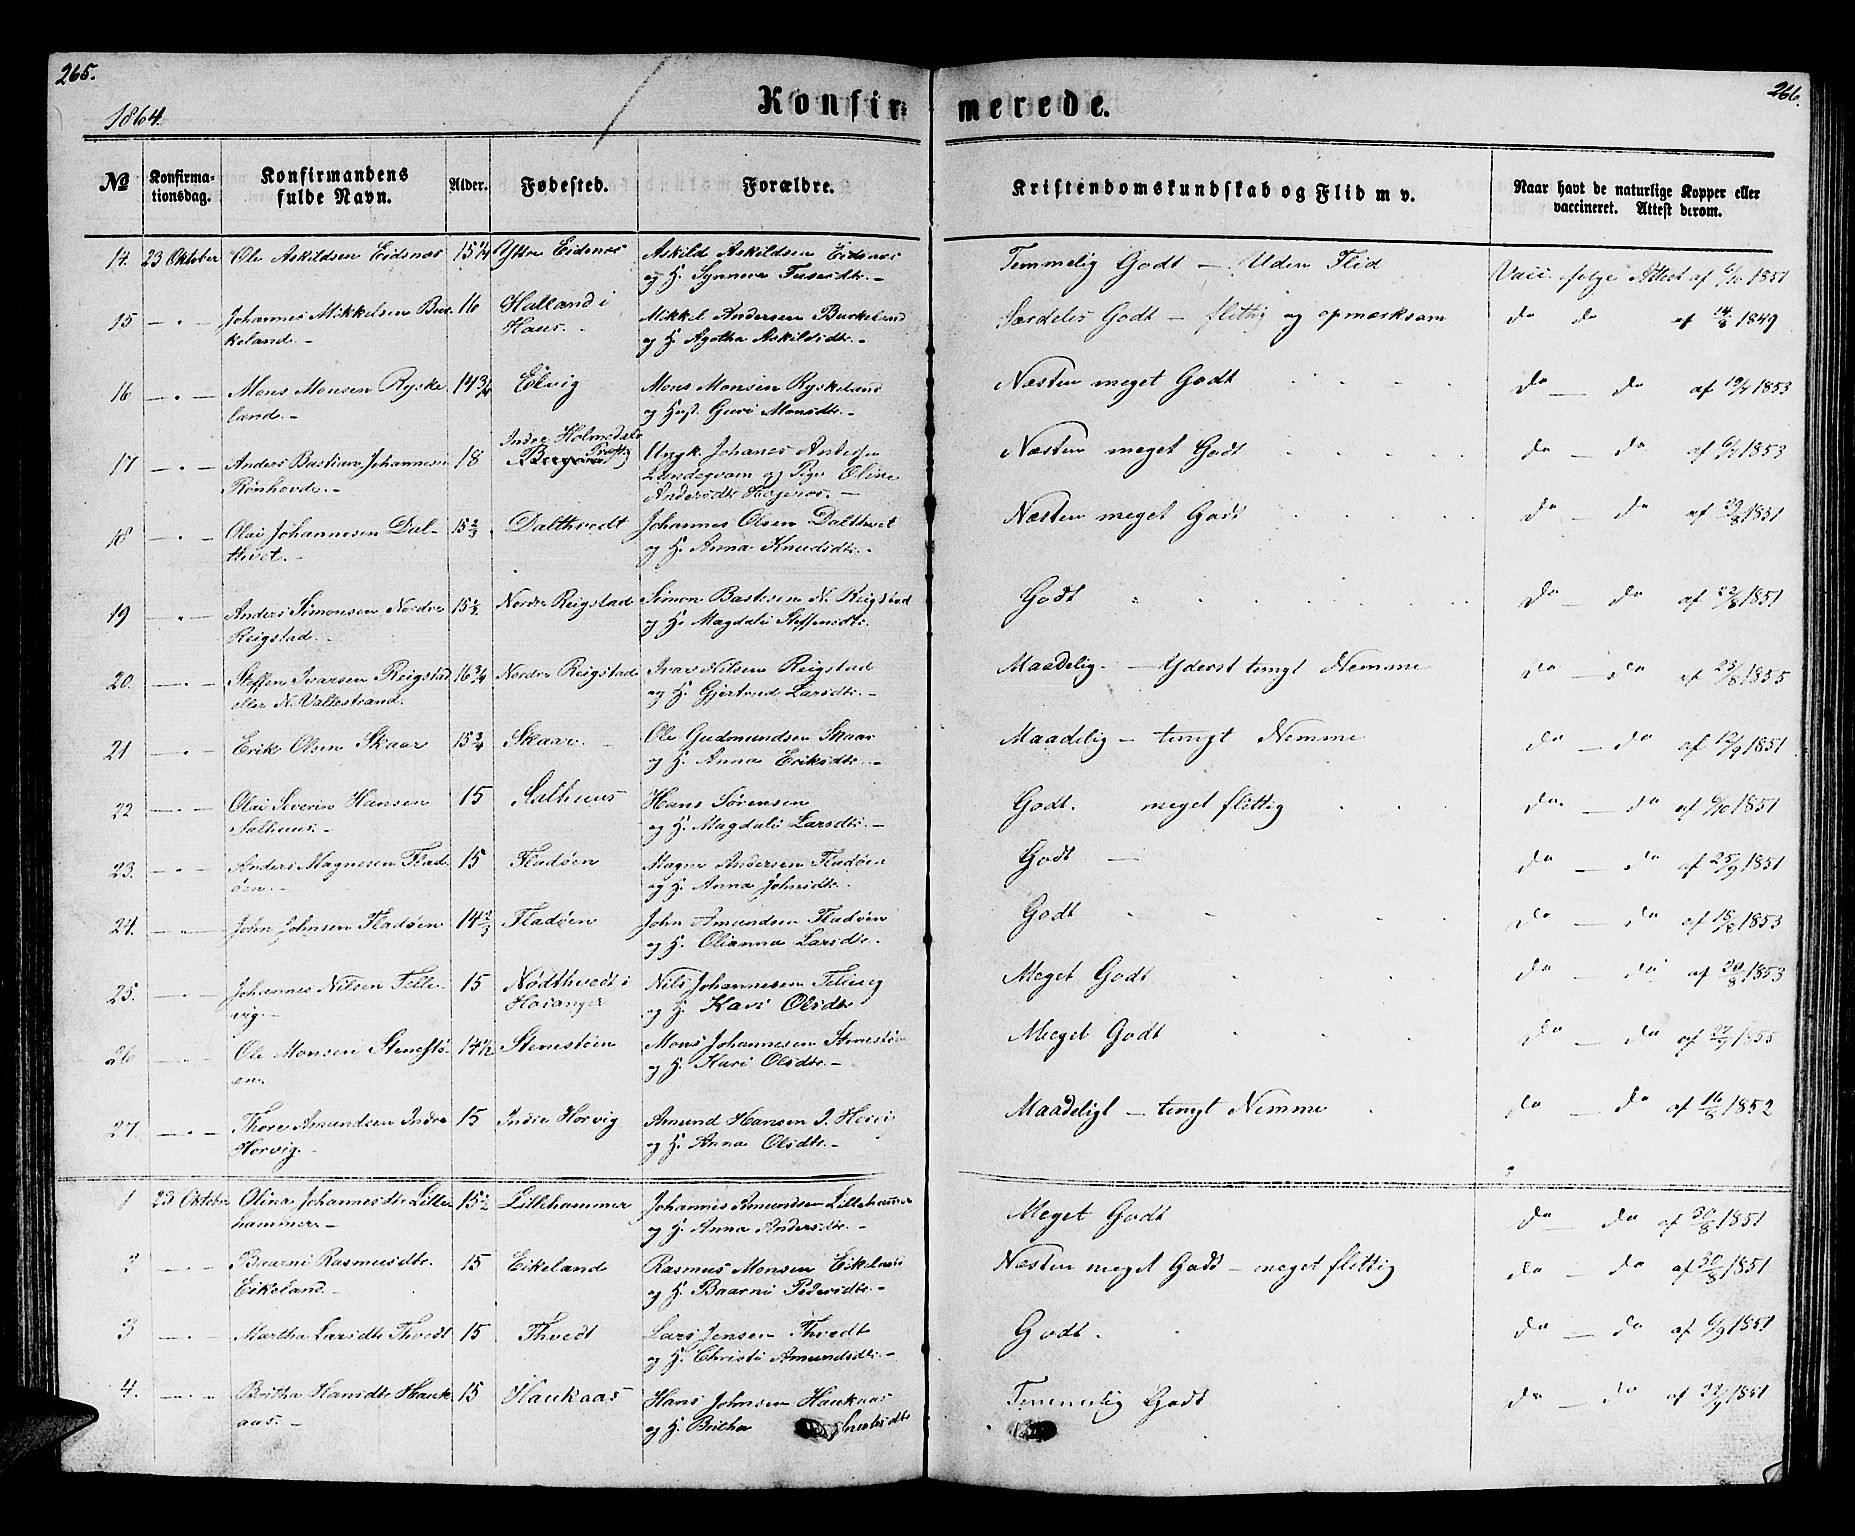 265.
266.
1864.
Konfir
merede.
No
Konfirma-
tionsdag.
Konfirmandens
fulde Navn.
Alder.
Fødested.
Forældre.
Kristendomskundskab og Flid m v.
Naar havt de naturlige Kopper eller
vaccineret. Attest derom.
14. 23 Oktober Ole Askildsen Eidsnæs 15 1/4 Ytre Eidsnes Askild Askildsen Eidsnes Temmelig Godt — Uden Flid Vacc. følge Attest af 6/10 1851
og H. Synneva
15 — " — Johannes Mikkelsen Bur 16 Halland i Mikkel Andersen Burkeland Særdeles Godt — flittig og opmærksom do do af 14/8 1849
keland.— Haus.— og H. Agatha Askildsdtr.—
16 — " — Mons Monsen Ryske 14 3/4 Eelvig Mons Monsen Ryskeland Næsten meget Godt do — do af 19/7 1853
land.— og Hust. Guri Monsdtr.—
17 — " — Anders Bastian Johannesen 18 Indre Holmedals Ungk. Johanes Andersen Næsten meget Godt do — do af 1853
Rønhovde.— Præstg. Lundegvam og Pige Oline
Andersdtr
18 — " — Olai Johannesen Dal- 15 2/3 Dalthvedt Johannes Olsen Dalthvet Næsten meget Godt do — do af 29/8 1851
thvet.— og H. Anna Knudsdtr.—
19 — " — Anders Simonsen Nordre 15 1/2 Nordre Reigstad Simon Bastesen N. Reigstad Godt do — do af 22/8 1851
Reigstad.— og H. Magdali Steffensdtr.
20. — " — Steffen Ivarsen Reigstad 16 3/4 Nordre Reigstad Ivar Nilsen Reigstad Maadelig. — Yderst tungt Nemme do — do af 23/8 1855
eller N. Vallestrand. og H. Gjertrud Larsdtr.—
21 — " — Erik Olsen Skaar 15 3/4 Skaar.— Ole Gudmundsen Skaar Maadelig — tungt Nemme do — do af 12/9 1851
og H. Anna Eriksdtr.—
22 — " — Olai Severin Hansen 15 Salhuus Hans Sørensen Godt. meget flittig do. — do af 6/10 1851
Salhuus.— og H. Magdali Larsdtr.—
23. — " — Anders Magnesen Flad- 15 Fladøen Magne Andersen Fladøen Godt — do — do af 25/9 1851
øen.— og H. Anna Johnsdtr.
24. — " — John Johnsen Fladøen 14 2/3 Fladøen John Amundsen Fladøen Godt do — do af 18/8 1853
og H. Olianna Larsdtr.
25. — " — Johannes Nilsen Telle- 15 Nødthvedt i Nils Johannesen Tellevig Meget Godt do — do af 20/8 1853
vig.— Havanger og H. Kari Olsdtr
26 — " — Ole Monsen Stenestø- 14 1/2 Stenestøen Mons Johannesen Stenestøen Meget Godt do — do af 1855
en. og H. Kari Olsdtr.—
27. — " — Thore Amundsen Indre 15 Indre Horvig Amund Hansen I. Horvig Maadeligt — tungt Nemme do — do af 16/8 1852
Horvig.— og H. Anna Olsdtr.—
1 23 Oktober Olina Johannesdtr Lille 15 1/2 Lillehammer Johannes Amundsen Lillehammer Meget Godt do — do af 30/8 1851
hammer.— og H. Anna Andersdtr.—
2 — " — Baarni Rasmusdtr. 15 Eikeland Rasmus Monsen Eikeland Næsten meget Godt — meget flittig do — do af 30/8 1851
Eikeland.— og H. Baarni Pedersdtr.—
3 — " — Martha Larsdtr Thvedt 15 Thvedt Lars Jensen Thvedt Godt. do — do af 6/9 1851
og H. Christi Amundsdtr.—
4. — " — Britha Hansdtr Hauk 15 Haukaas Hans Johnsen Haukaas Temmelig Godt do — do af 1851
aas.— og H. Britha